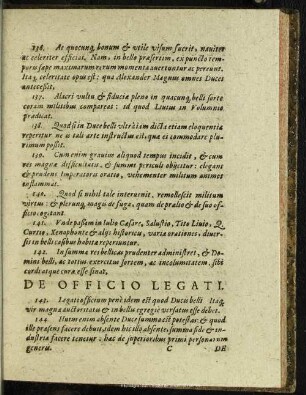 136. At quacunq, bonum & utile visum fuerit, naviter
ac celeriter efficiat. Nam, in bello præsertim, ex puncto tem-
poris sæpe maximarum rerum momenta aucteuntur ac pereunt.
Itaq, celeritate opus est: qua Alexander Magnus omnes Duces
antecessit.
137. Alacri vultu & fiducia pleno in quacunq, belli sorte
coram militibus compareat: id quod Livius in Volumnio
prædicat.
138. Quod si in Duce belli ultra iam dicta etiam eloquentia
reperitur ne à tali arte instructus est, qua ei commodare plu-
rimum possit.
139. Cum enim gravius aliquod tempus incidit, & cum
res magna difficultatis, & summi periculi objicitur: elegans
& prudens Imperatoris oratio, vehementer militum animos
inflammat.
140. Quod si nihil tale intervenit, remollescit militum
virtus: & plerunq, magis de fuga, quam de prælio & de suo
officio cogitant.
141. Unde passim in Iulio Cæsare, Salustio, Tito Livio, Q.
Curtio, Xenophonte & alijs historicis, varia orationes, diver-
sis in belli casibus habitæ reperiuntur.
142. In summa res bellicas prudenter administret, & Do-
mini belli, ac totius exercitus sortem, ac incolumitatem, sibi
cordi atque curæ esse sinat.
DE OFFICIO LEGATI.
143. Legati officium penè idem est quod Ducis belli. Itaq,
vir magna auctoritatis & in bellis egregiè versatus esse debet.
144. Hut enim absente Duce summa est potestas: & quod
ille præsens facere debuit, idem hic illo absente, summa fide & in-
dustria facere tenetur: hac de superioribus primi personatum
generis. C DE